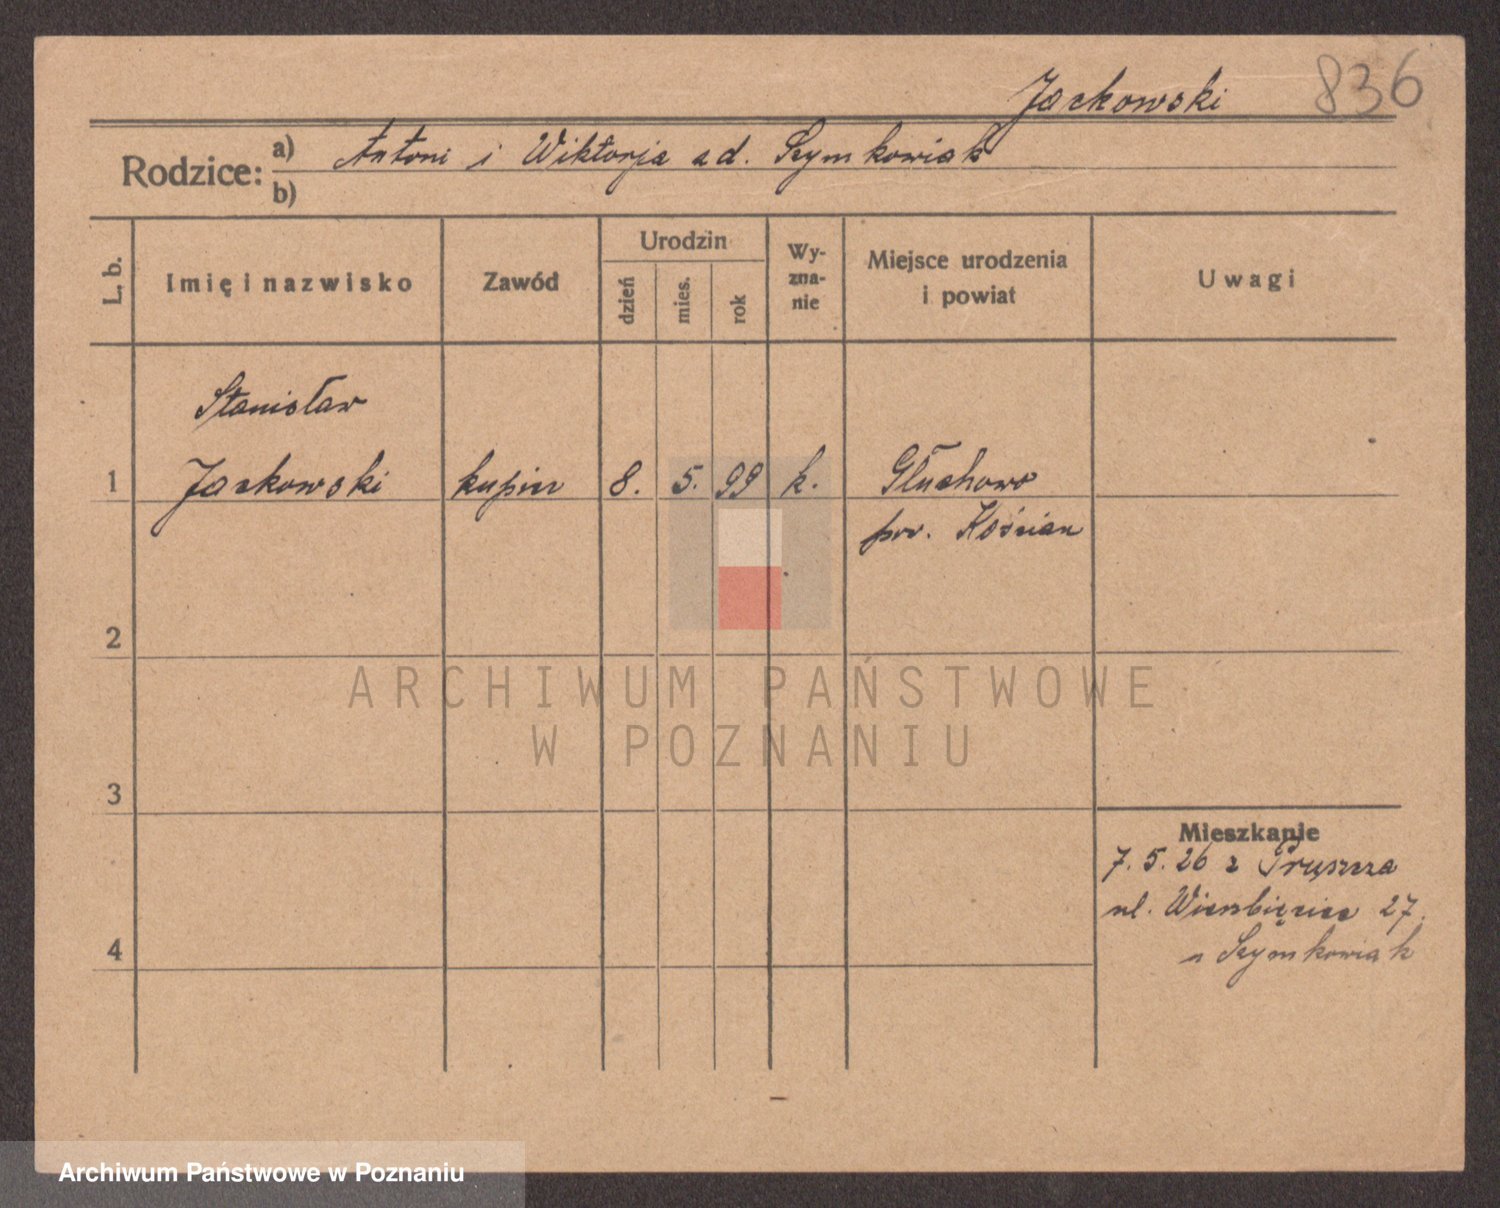 Jackowski
836
Rodzice:
a) Antoni i Wiktorja zd. Szymkowiak
b)
L. b.
Imię i nazwisko
Zawód
Urodzin
dzień
mies.
rok
Wy-
zna-
nie
Miejsce urodzenia
i powiat
Uwagi
Stanisław
1 Jackowski kupiec 8. 5. 99 k. Głuchowo
pow. Kościan
2
ARCHIWUM PAŃSTWOWE
W POZNANIU
3
Mieszkanie
7. 5. 26 z
ul. Wierzbięcice 27.
4
u Szymkowiak
Archiwum Państwowe w Poznaniu